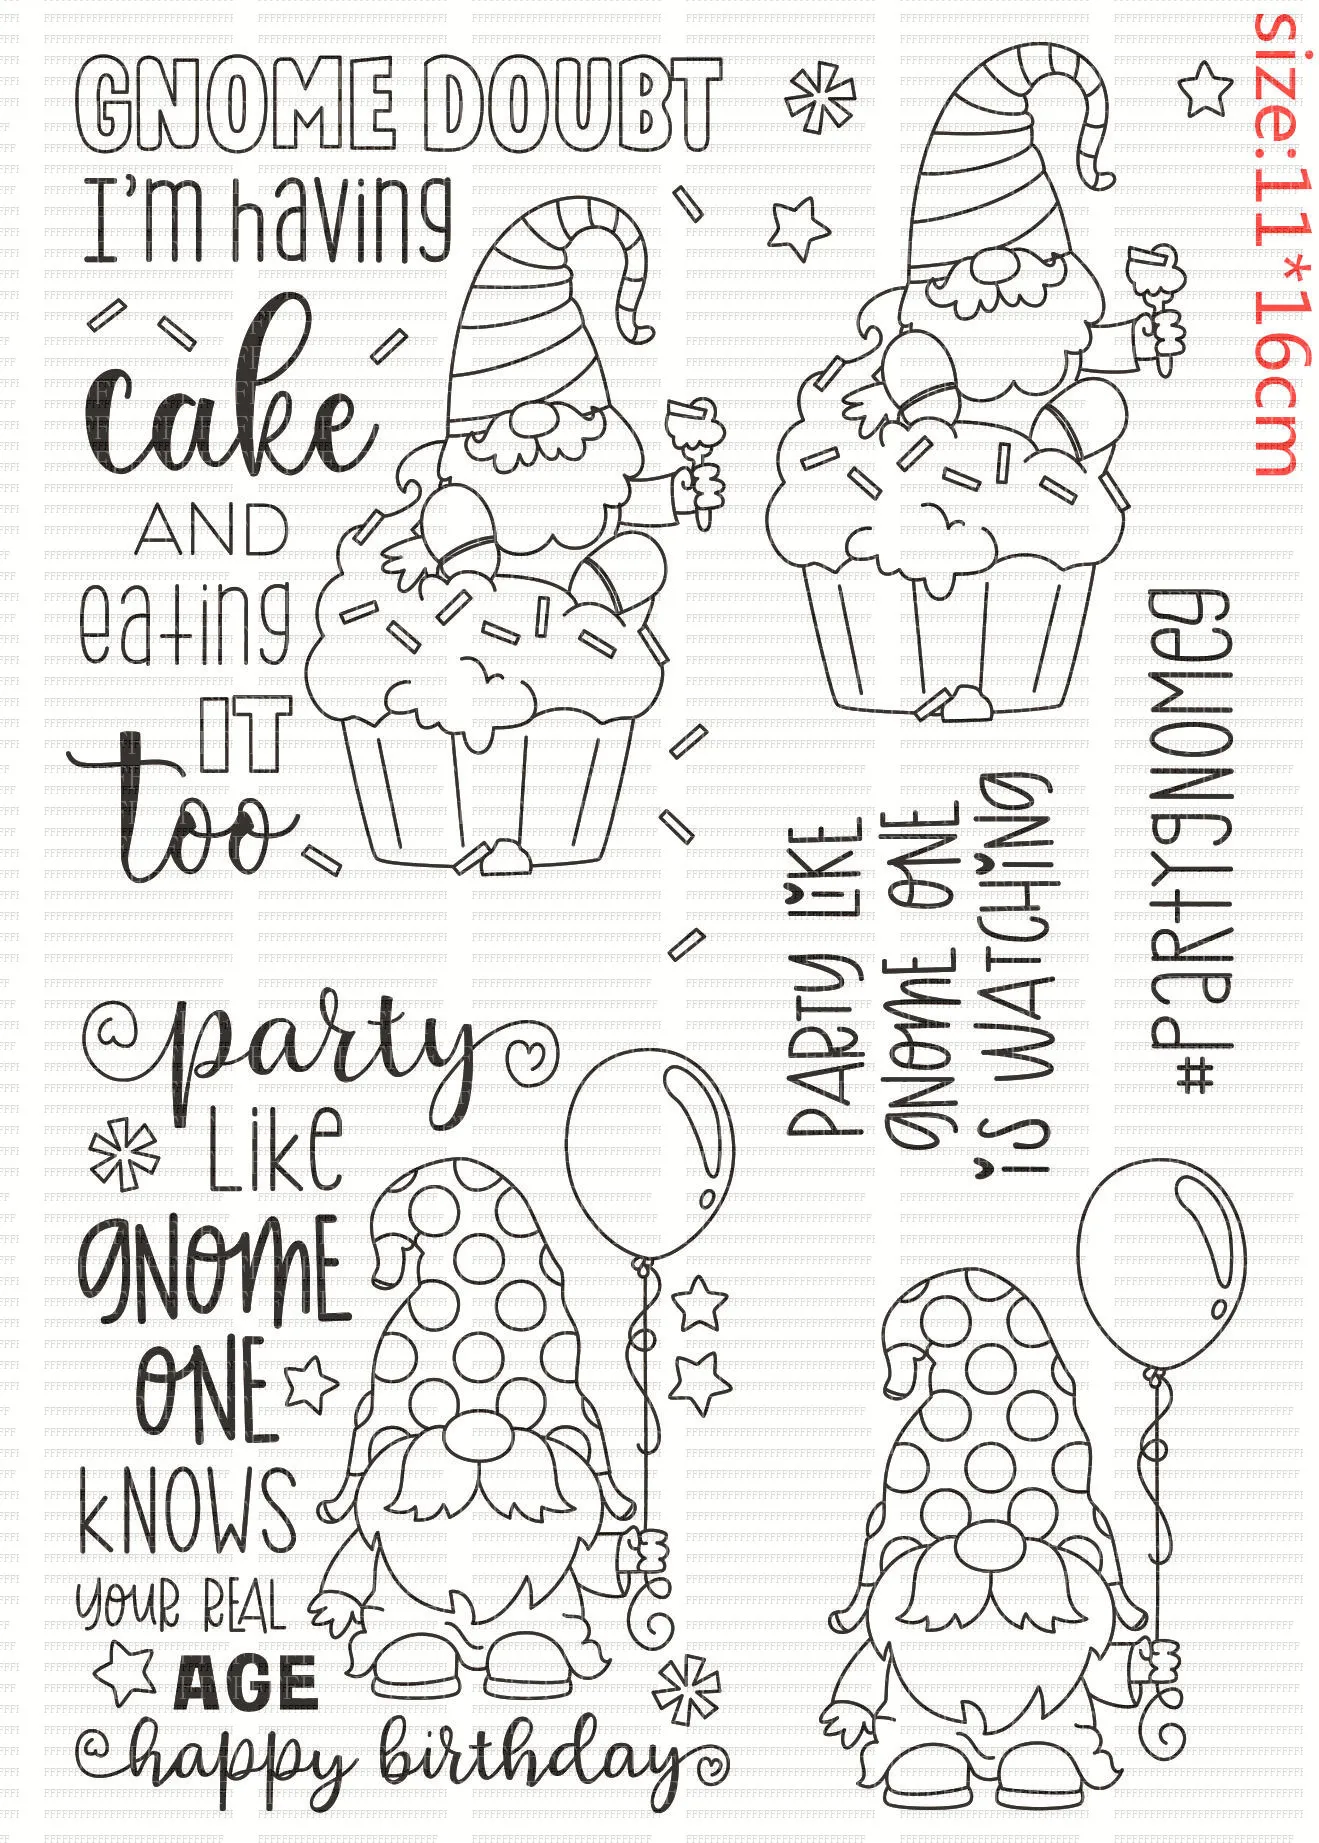 GNOME DOUBT
I'm having
cake
AND
eating
IT
too
size:11*16cm
PARTY LIKE
GNOME ONE
iS WATCHING
#PaRtYgNOMeg
party
Like
gNOME
ONE
kNOWS
YOUR REAL
AGE
happy birthday